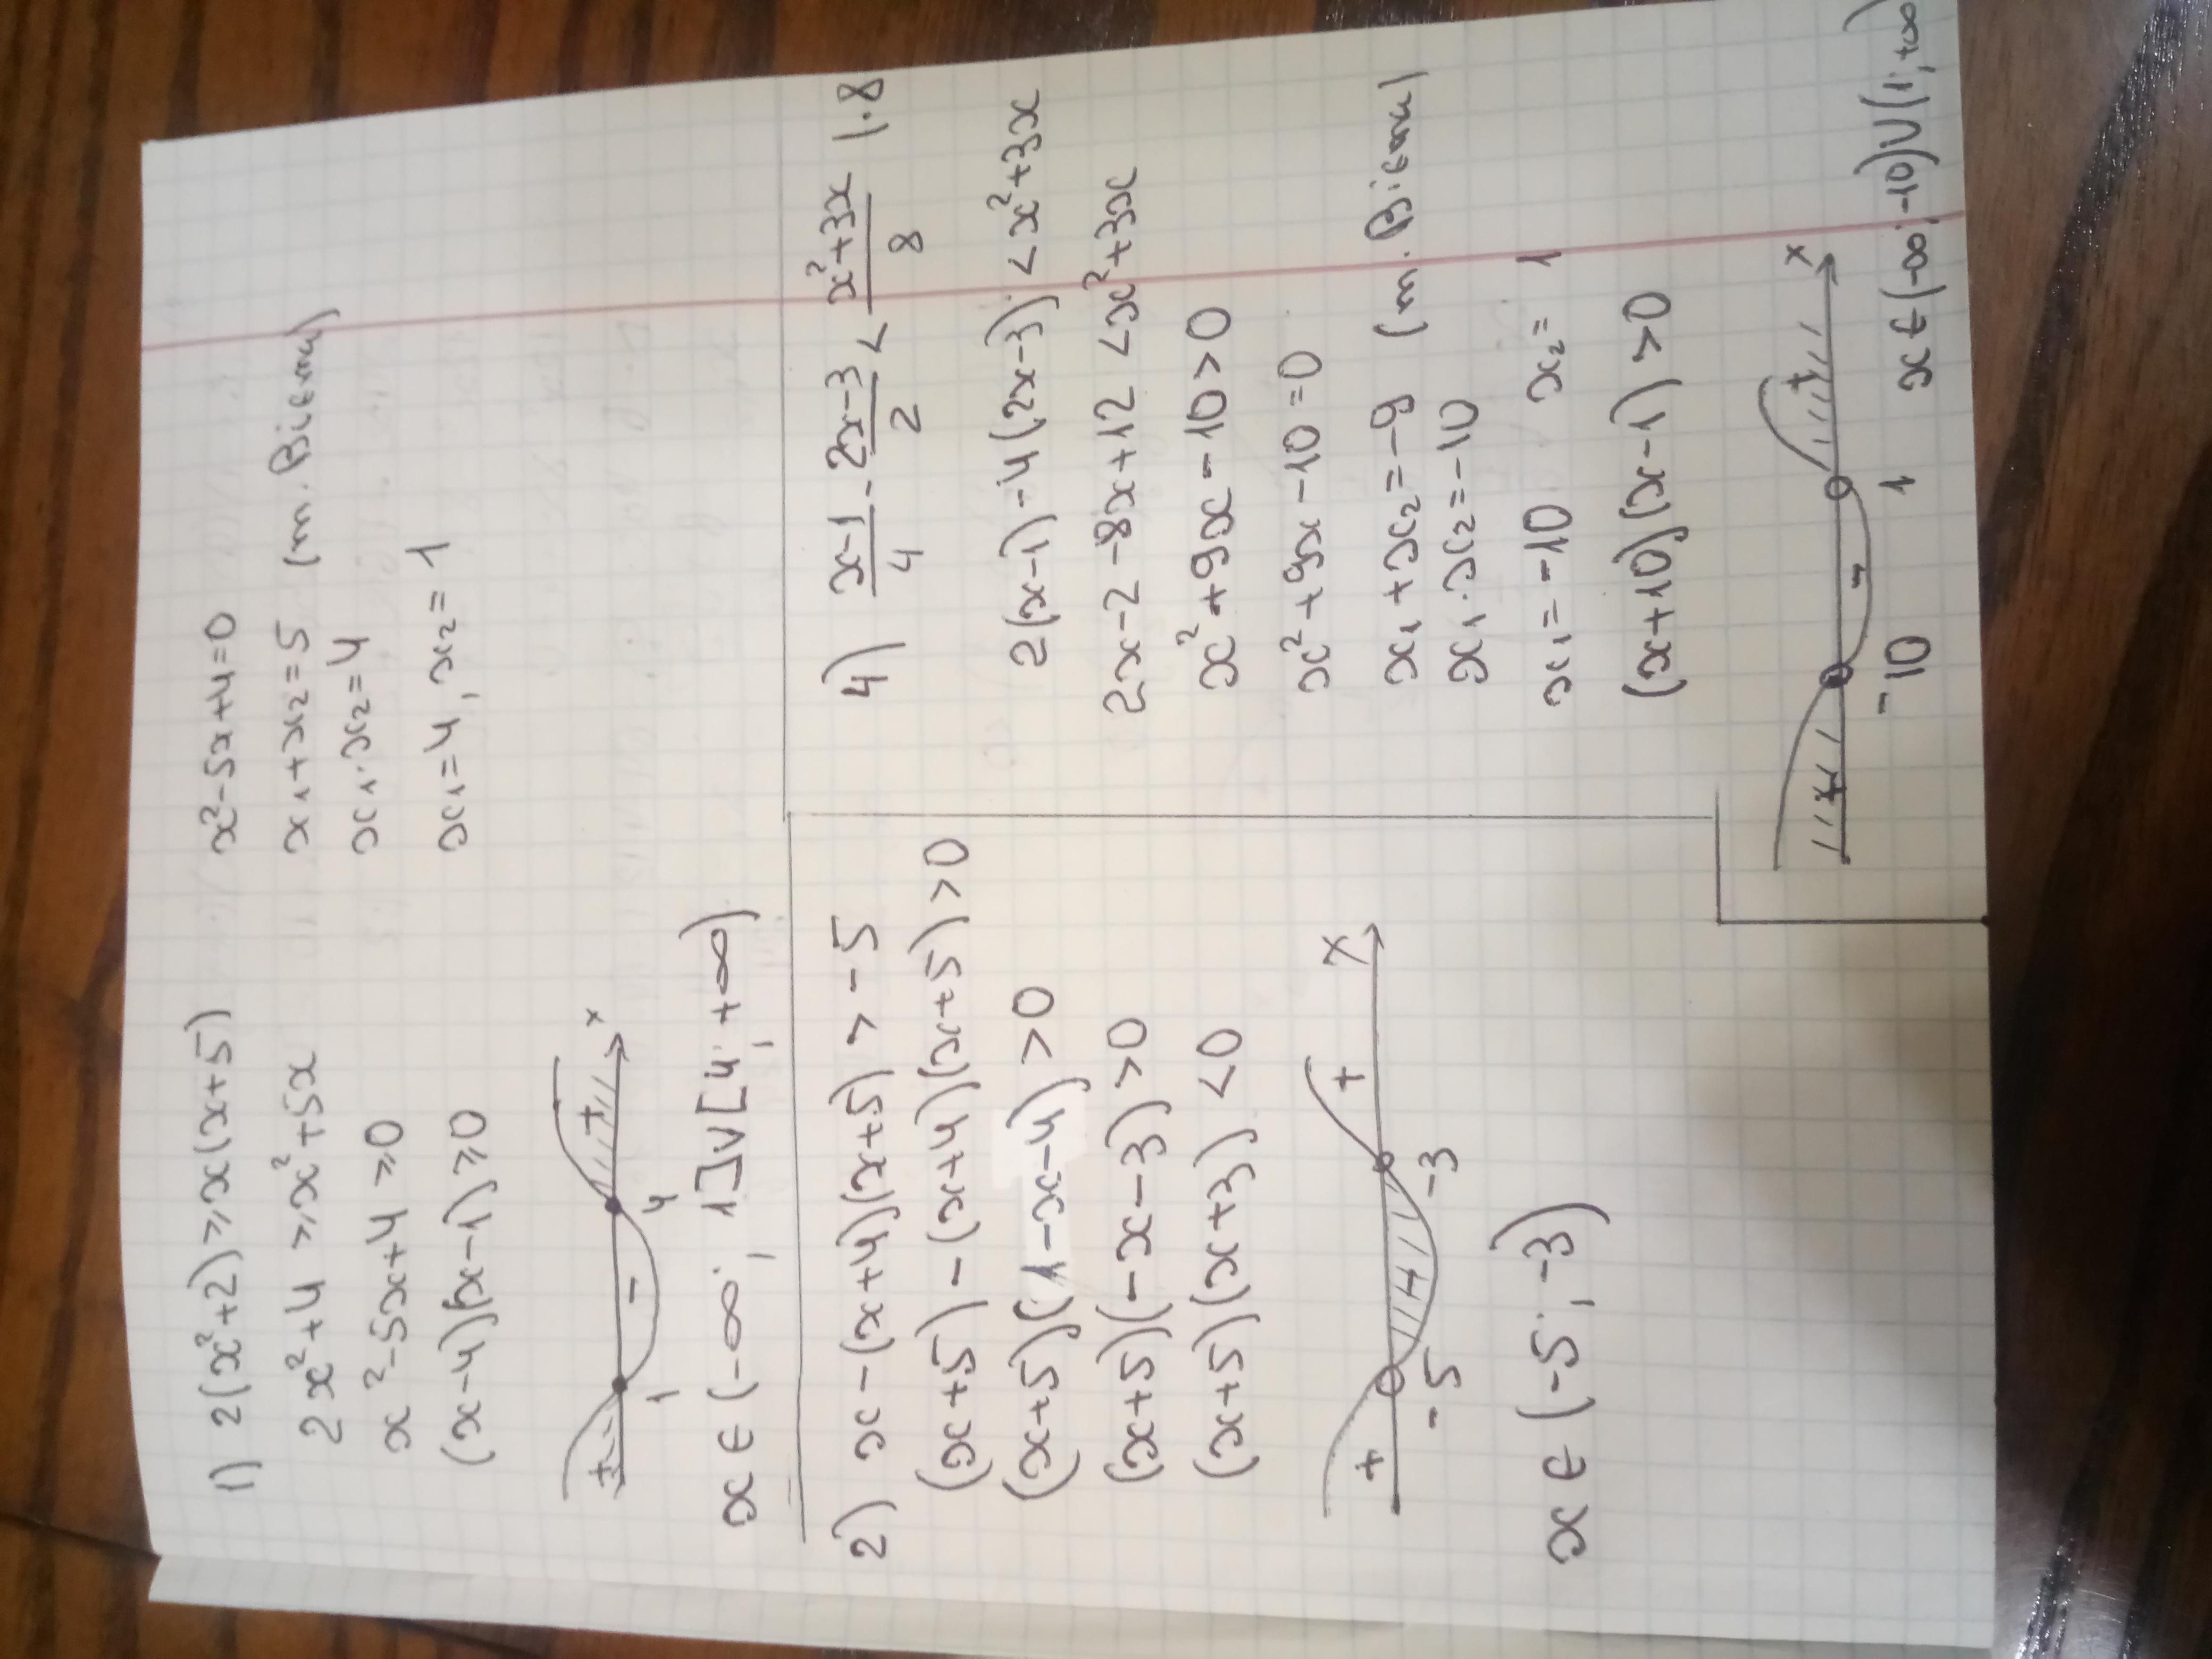 1) 2(x²+2)≥x(x+5)
2x²+4≥x²+5x
x²-5x+4≥0
(x-4)(x-1)≥0
x²-5x+4=0
x₁+x₂=5 (т. Вієта)
x₁·x₂=4
x₁=4, x₂=1
+ - + x
1 4
x∈(-∞; 1]∪[4; +∞)
2) x-(x+4)(x+5)>-5
(x+5)-(x+4)(x+5)>0
(x+5)(1-x-4)>0
(x+5)(-x-3)>0
(x+5)(x+3)<0
+ - + x
-5 -3
x∈(-5; -3)
4) (x-1)/4 - (2x-3)/2 < (x²+3x)/8 |·8
2(x-1)-4(2x-3)<x²+3x
2x-2-8x+12<x²+3x
x²+9x-10>0
x²+9x-10=0
x₁+x₂=-9 (т. Вієта)
x₁·x₂=-10
x₁=-10 x₂=1
(x+10)(x-1)>0
+ - + x
-10 1
x∈(-∞;-10)∪(1;+∞)